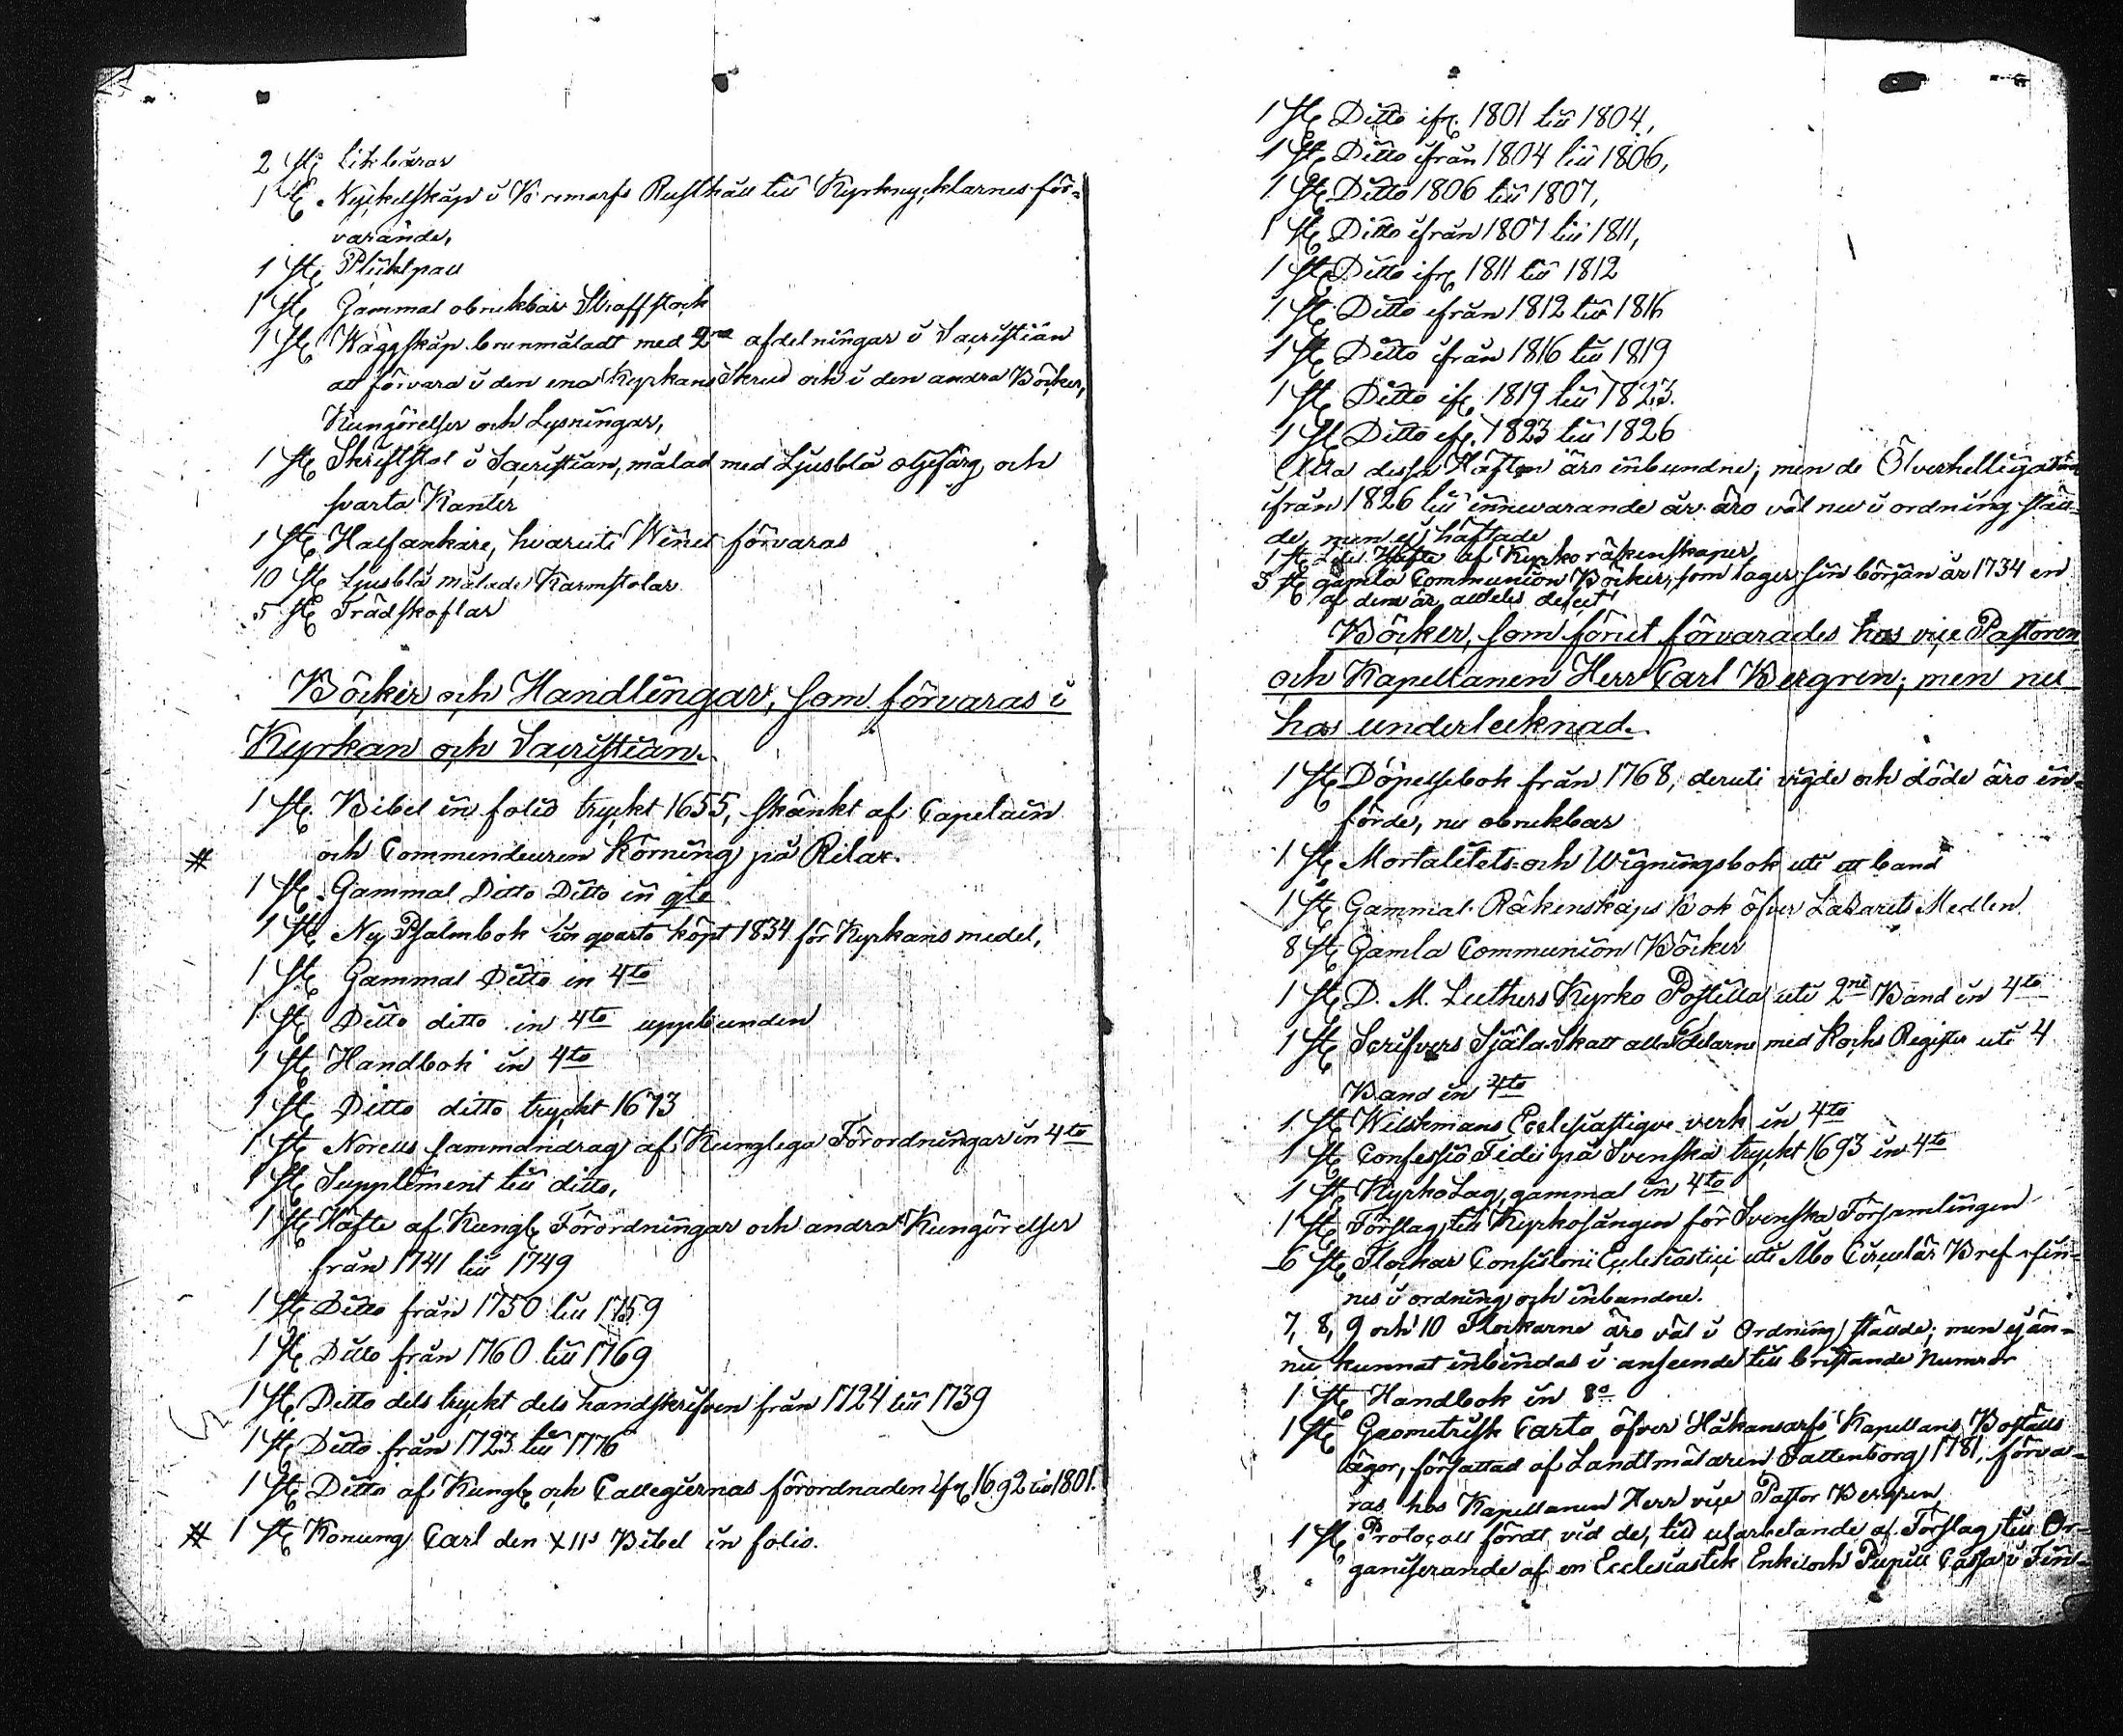 2 st. Likbårar
1 st. Nyckelskåp i Rusthåll till Kyrknycklarnes för-
varande,
1 st. Pliktpall
1 st. Gammal obrukbar Straffstock
1 st. Wäggskåp brunmåladt med 2ne afdelningar i Sacristian
att förvara i den ena Kyrkans Skrud och i den andra Böcker,
Kungörelser och Lysningar,
1 st. Skriftstol i Sacristian, målad med Ljusblå oljefärg och
svarta Kanter
1 st. Halfankare, hvaruti Winet förvaras
10 st. Ljusblå målade Karmstolar
5 st. Trädskoflar
Böcker och Handlingar, som förvaras i
Kyrkan och Sacristian.
1 st. Bibel in folio tryckt 1655, skänkt af Capetain
# och Commendeuren Körning på Rilax.
1 st. Gammal Ditto Ditto in qto
1 st. Ny Psalmbok in qvarto köpt 1834 för Kyrkans medel,
1 st. Gammal Ditto in 4to
1 st. Ditto ditto in 4to uppbunden
1 st. Handbok in 4to
1 st. Ditto ditto tryckt 1673
1 st. Norells sammandrag af Kunglega Förordningar in 4to
1 st. Supplement till ditto,
1 st. Häfte af Kungl. Förordningar och andra Kungörelser
från 1741 till 1749
1 st. Ditto från 1750 till 1759
1 st. Ditto från 1760 till 1769
1 st. Ditto dels tryckt dels handskrifven från 1724 till 1739
1 st. Ditto från 1723 till 1776
1 st. Ditto af Kungl. och Collegiernas förordnaden ifr. 1692 till 1801.
# 1 st. Konung Carl den XIIs Bibel in folio.
1 st. Ditto ifr. 1801 till 1804,
1 st. Ditto ifrån 1804 till 1806,
1 st. Ditto 1806 till 1807,
1 st. Ditto ifrån 1807 till 1811,
1 st. Ditto ifr. 1811 till 1812
1 st. Ditto ifrån 1812 till 1816
1 st. Ditto ifrån 1816 till 1819
1 st. Ditto ifr. 1819 till 1823.
1 st. Ditto ifr. 1823 till 1826
Alla dessa Häften äro inbundne; men de
ifrån 1826 till innevarande år äro väl nu i ordning stäl-
de, men ej häftade
1 st. Häfte af Kyrko räkenskaper,
3 st. gamla Communion Böcker, som tager sin början år 1734 en
af dem är alldeles defect
Böcker, som förut förvarades hos vice Pastoren
och Kapellanen Herr Carl Bergren; men nu
hos undertecknad.
1 st. Döpelsebok från 1768, deruti vigde och döde äro in-
förde, nu obrukbar
1 st. Mortalitets- och Wigningsbok uti ett band
1 st. Gammal Räkenskaps Bok öfver Lazarets Medlen
8 st. Gamla Communion Böcker
1 st. D. M. Luthers Kyrko Postilla uti 2ne Band in 4to
1 st. Scrifvers Själa-Skatt alla delarne med Kochs Register uti 4
Band in 4to
1 st. Wilskmans Ecclesiastique verk in 4to
1 st. Confessio Fidei på Svenska tryckt 1693 in 4to
1 st. Kyrko Lag, gammal in 4to
1 st. Förslag till Kyrkosången för Svenska Församlingen
6 st. Flockar Consistorii Ecclesiastici uti Åbo Circulär Bref fin-
nes i ordning och inbundne.
7, 8, 9 och 10 Flockarne äro väl i Ordning stälde; men ej än-
nu kunnat inbindas i anseende till bristande Numror
1 st. Handbok in 8o
1 st. Geometrisk Carta öfver Håkansarfs Kapellans Boställs
ägor, författad af Landtmätaren Tattenborg 1781, förva-
ras hos Kapellanen Herr vice Pastor Bergren,
1 st. Protocoll fördt vid de, till utarbetande af Förslag till Or-
ganiserande af en Ecclesiastik Enke och Pupill Cassa i Fin-